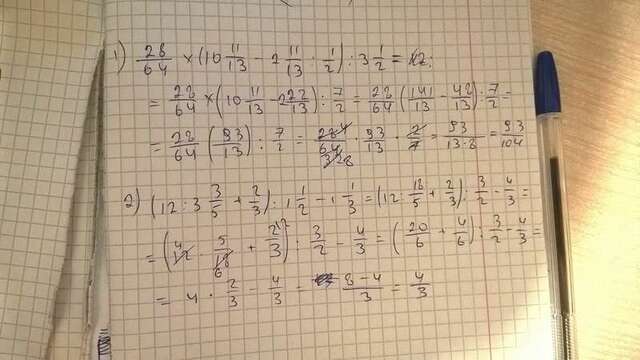 1) 28/64 × (10 11/13 − 2 11/13 : 1/2) : 3 1/2 =
= 28/64 × (10 11/13 − 2 22/13) : 7/2 = 28/64 (141/13 − 48/13) : 7/2 =
= 28/64 (93/13) : 7/2 = 28/64 · 93/13 · 2/7 = 93/13·8 = 93/104
2) (12 : 3 3/5 + 2/3) : 1 1/2 − 1 1/3 = (12 : 18/5 + 2/3) : 3/2 − 4/3 =
= (12 · 5/18 + 2/3) : 3/2 − 4/3 = (20/6 + 4/6) : 3/2 − 4/3 =
= 4 · 2/3 − 4/3 = 8−4/3 = 4/3